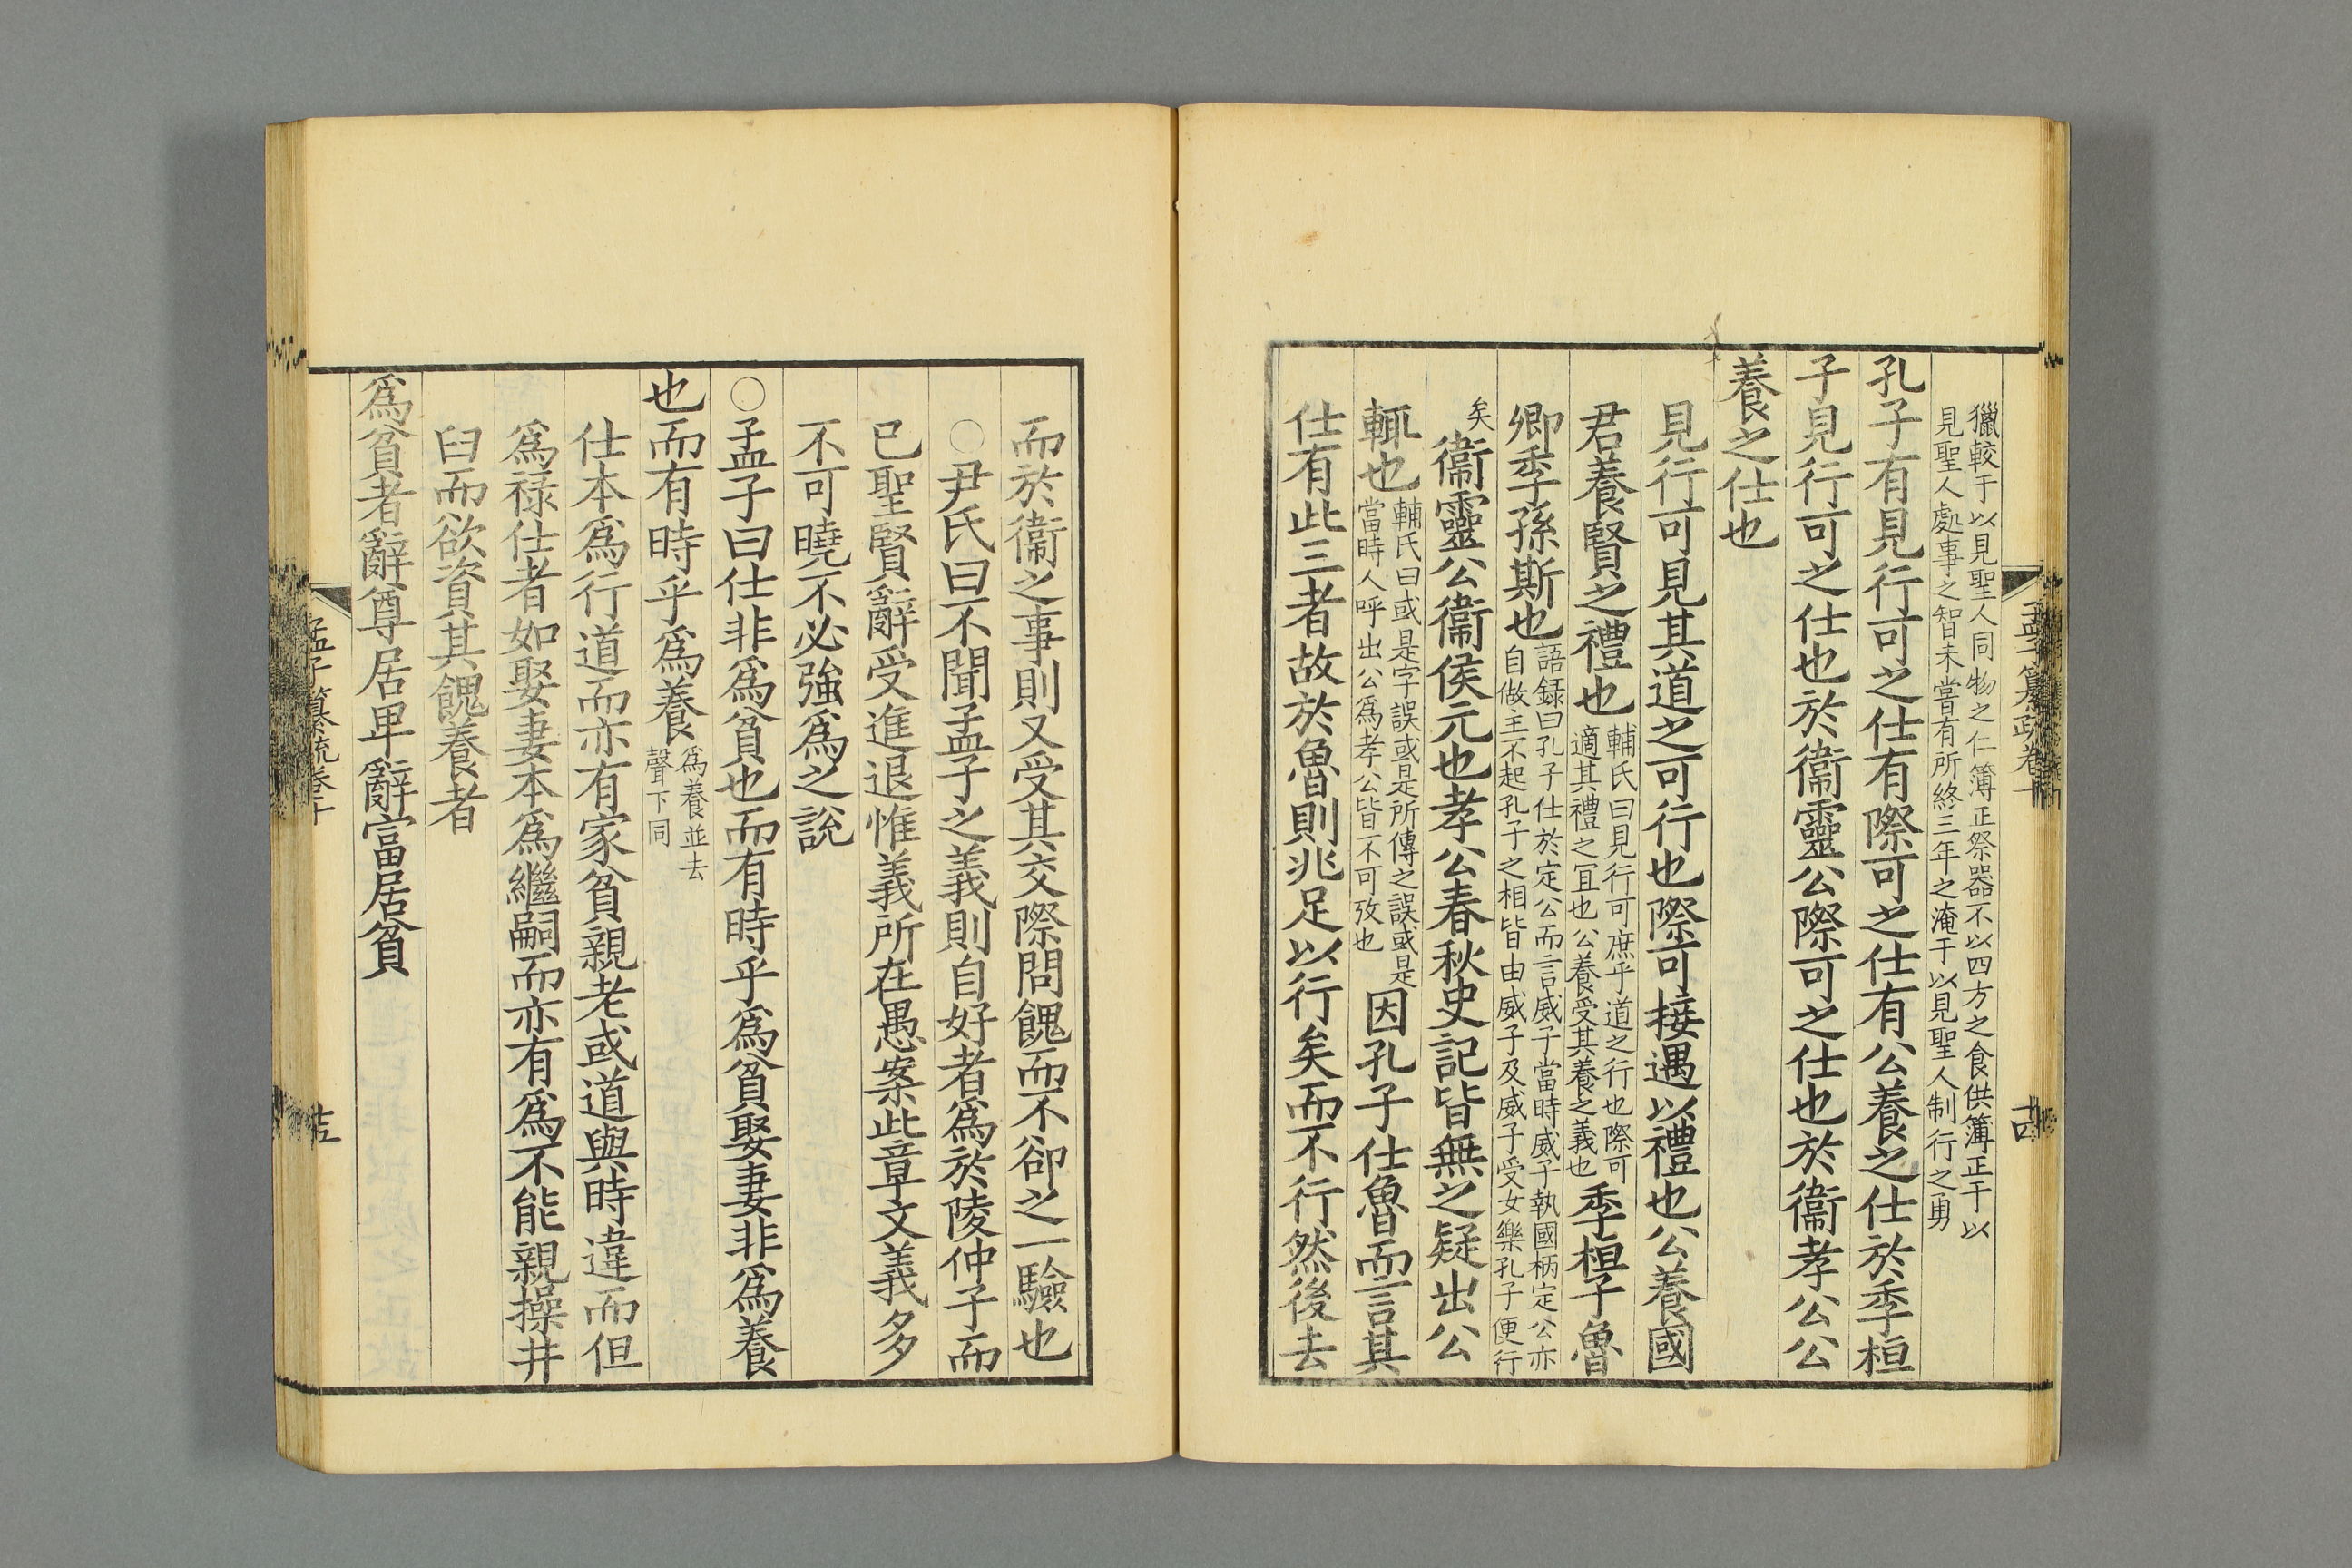 孟子纂疏卷十
十四
獵較于以見聖人同物之仁簿正祭器不以四方之食供簿正于以
見聖人處事之智未嘗有所終三年之淹于以見聖人制行之勇
孔子有見行可之仕有際可之仕有公養之仕於季桓
子見行可之仕也於衞靈公際可之仕也於衞孝公公
養之仕也
見行可見其道之可行也際可接遇以禮也公養國
君養賢之禮也
輔氏曰見行可庶乎道之行也際可
適其禮之宜也公養受其養之義也
季桓子魯
卿季孫斯也
語録曰孔子仕於定公而言威子當時威子執國柄定公亦
自做主不起孔子之相皆由威子及威子受女樂孔子便行
矣
衞靈公衞侯元也孝公春秋史記皆無之疑出公
輒也
輔氏曰或是字誤或是所傳之誤或是
當時人呼出公爲孝公皆不可攷也
因孔子仕魯而言其
仕有此三者故於魯則兆足以行矣而不行然後去
而於衞之事則又受其交際問餽而不卻之一驗也
○尹氏曰不聞孟子之義則自好者爲於陵仲子而
已聖賢辭受進退惟義所在愚案此章文義多
不可曉不必強爲之說
○孟子曰仕非爲貧也而有時乎爲貧娶妻非爲養
也而有時乎爲養
爲養並去
聲下同
仕本爲行道而亦有家貧親老或道與時違而但
爲祿仕者如娶妻本爲繼嗣而亦有爲不能親操井
臼而欲資其餽養者
爲貧者辭尊居卑辭富居貧
孟子纂疏卷十
十五